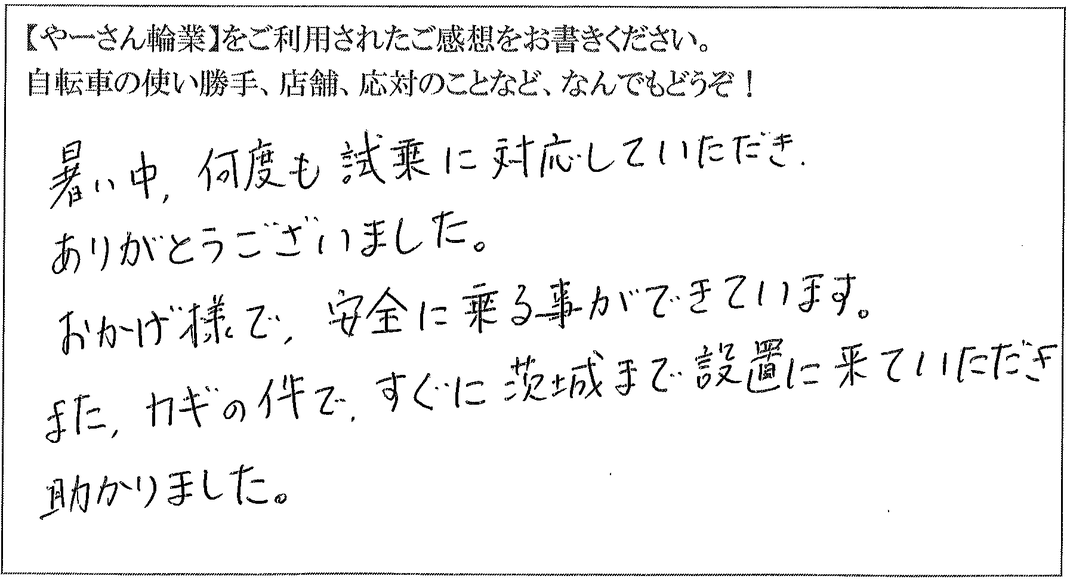 【やーさん輪業】をご利用されたご感想をお書きください。
自転車の使い勝手、店舗、応対のことなど、なんでもどうぞ！
暑い中, 何度も試乗に対応していただき.
ありがとうございました。
おかげ様で, 安全に乗る事ができています。
また, カギの件で, すぐに茨城まで設置に来ていただき
助かりました。